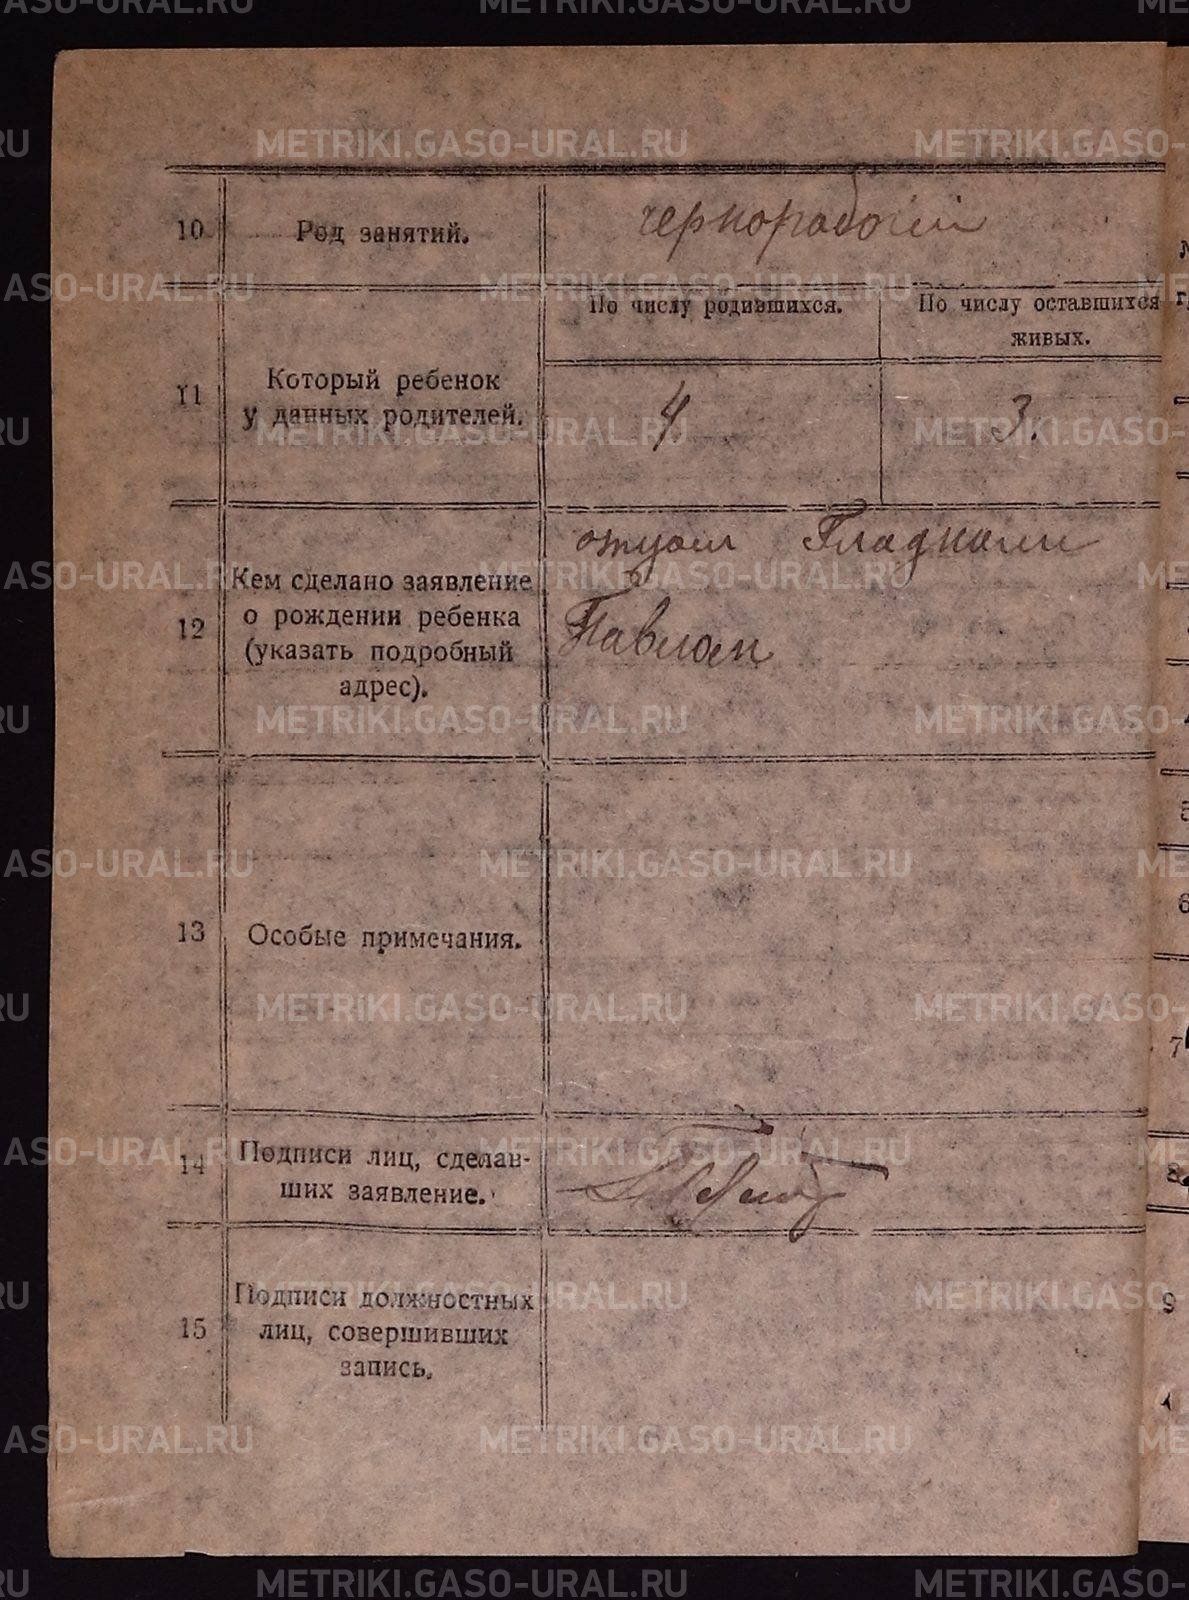 10 Род занятий. чернорабочий
По числу родившихся. По числу оставшихся живых.
11 Который ребенок
у данных родителей.
4 3.
12 Кем сделано заявление
о рождении ребенка
(указать подробный
адрес).
отцом
Павлом
13 Особые примечания.
14 Подписи лиц, сделав-
ших заявление.
15 Подписи должностных
лиц, совершивших
запись.
5
6
7
8
9
METRIKI.GASO-URAL.RU